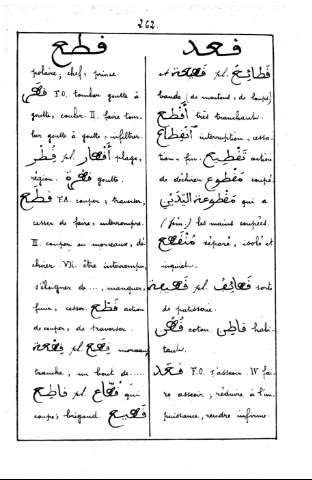 262.
قطع
polaire, chef, prince
قطر F.O. tomber goutte à
goutte, couler II. faire tom-
ber goutte à goutte, infiltrer.
قطر pl. أقطار plage,
région. قطرة goutte.
قطع F.A. couper, traverser,
cesser de faire, interrompre.
II. couper en morceaux, dé
chirer VII. être interrompu,
s'éloigner de ..., manquer,
finir, cesser. قطع action
de couper, de traverser.
قطعة pl. قطع morceau,
tranche, un bout de.....
قاطع pl. قطاع qui
coupe; brigand.
قعد
et قطيعة pl. قطائع
bande (de moutons, de loups)
أقطع très tranchant.
انقطاع interruption, cessa-
tion, fin. تقطيع action
de déchirer مقطوع coupé.
مقطوعة اليدين qui a
(fém.) les mains coupées.
منقطع séparé, isolé et
inquiet.
قطيفة pl. قطائف sorte
de patisserie.
قطن coton. قاطن habi-
tant.
قعد F.O. s'asseoir. IV fai
re asseoir, réduire à l'im
puissance, rendre infirme.